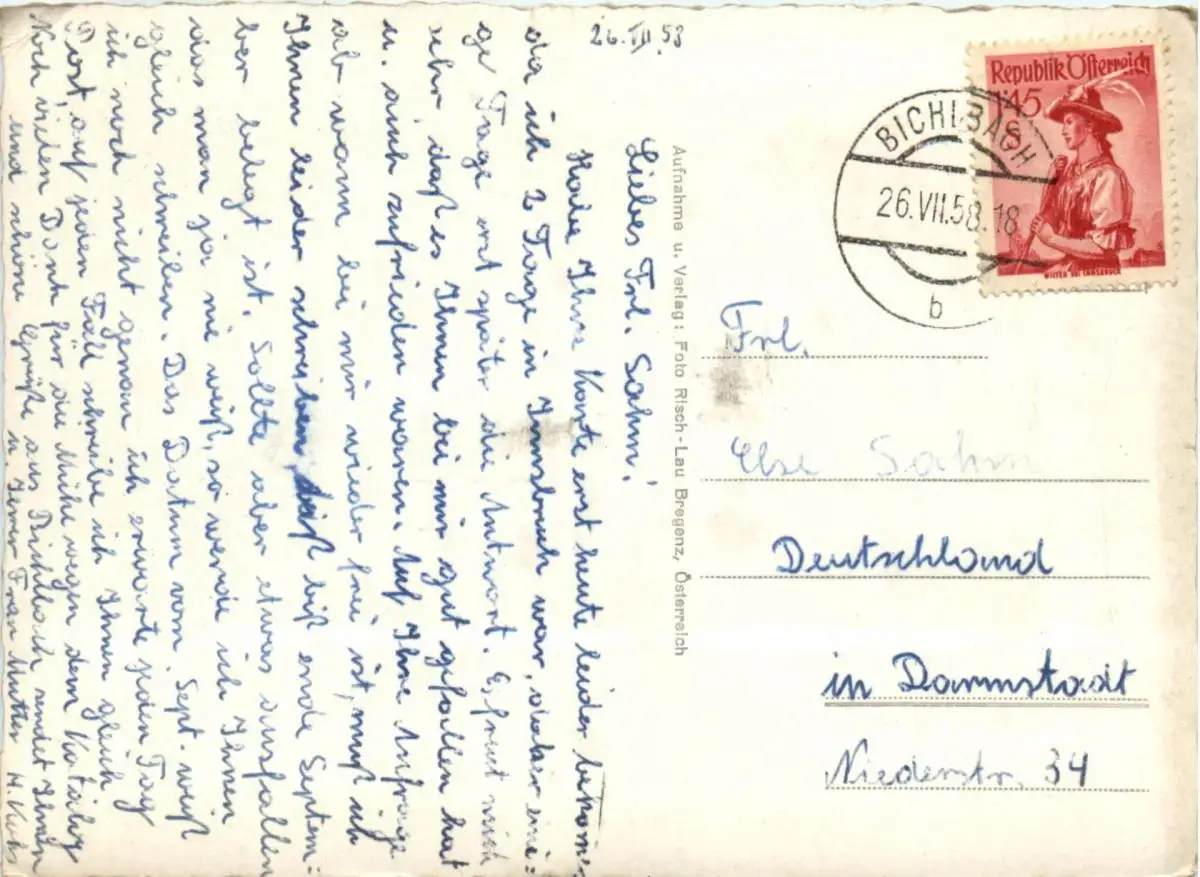 26.VII.58
Liebes Frl. Sahm!
Habe Ihre Karte erst heute leider bekomme
da ich 2 Tage in Innsbruck war, daher eini=
ge Tage erst später die Antwort. Es freut mich
sehr, daß es Ihnen bei mir gut gefallen hat
u. auch zufrieden waren. Auf Ihre Anfrage
ab wann bei mir wieder frei ist, muß ich
Ihnen leider schreiben, biß ende Septem=
ber belegt ist. Sollte aber etwas ausfallen
das man ja nie weiß, so werde ich Ihnen
gleich schreiben. Das Datum vom. Sept. weiß
ich noch nicht genau ich erwarte jeden Tag
Post, auf jeden Fall schreibe ich Ihnen gleich
Noch vielen Dank für die Mühe wegen dem Katalog
und schöne Grüße aus Bichlbach sendet Ihnen
u Ihrer Frau Mutter H.
Aufnahme u. Verlag: Foto Risch-Lau Bregenz, Österreich
Republik Österreich
1·45
S
WILTEN BEI INNSBRUCK
BICHLBACH
26.VII.58.18
b
Frl.
Else Sahm
Deutschland
in Darmstadt
Niederstr. 34